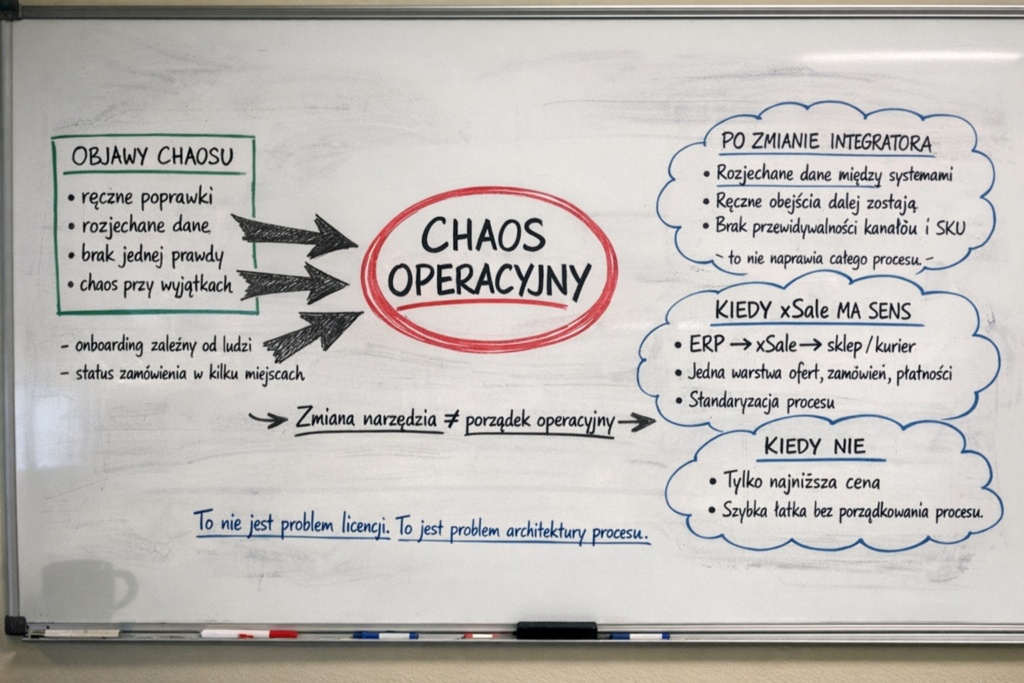 OBJAWY CHAOSU
• ręczne poprawki
• rozjechane dane
• brak jednej prawdy
• chaos przy wyjątkach
- onboarding zależny od ludzi
- status zamówienia w kilku miejscach
CHAOS
OPERACYJNY
Zmiana narzędzia ≠ porządek operacyjny
To nie jest problem licencji. To jest problem architektury procesu.
PO ZMIANIE INTEGRATORA
• Rozjechane dane między systemami
• Ręczne obejścia dalej zostają
• Brak przewidywalności kanałów i SKU
- to nie naprawia całego procesu. -
KIEDY xSale MA SENS
• ERP → xSale → sklep / kurier
• Jedna warstwa ofert, zamówień, płatności
• Standaryzacja procesu
KIEDY NIE
• Tylko najniższa cena
• Szybka łatka bez porządkowania procesu.